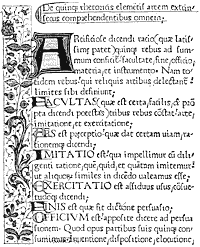 De quinq; rhetorices elemētis artem extrin
secus comprehendentibus omnem.
ARtificiose dicendi ratio, quæ latis
sime patet, quinq; rebus ad sum
mum conficit facultate, fine, officio
materia, et instrumento. Nam to
tidem rebus,
limites sibi definiunt.
FACULTAS quæ est certa, facilis, et prō
pta dicendi potestas, tribus rebus cōstat: arte,
imitatione, et exercitatione.
ARS est præceptio quæ dat certam uiam, ra
tionemq; dicendi.
IMITATIO est qua impellimur cū dili
genti ratione, quē, quid, et quātum imitemur
ut aliquoꝝ similes in dicēdo ualeamus esse.
EXERCITATIO est assiduus usus, cōsue
tudoq; dicendi.
FINIS est quæ fit dictiōne persuasio.
OFFICIUM est apposite dicere ad persua
sionem. Quod opus partibus suis quinq; con
sumit, inuentione, dispositione, elocutione,